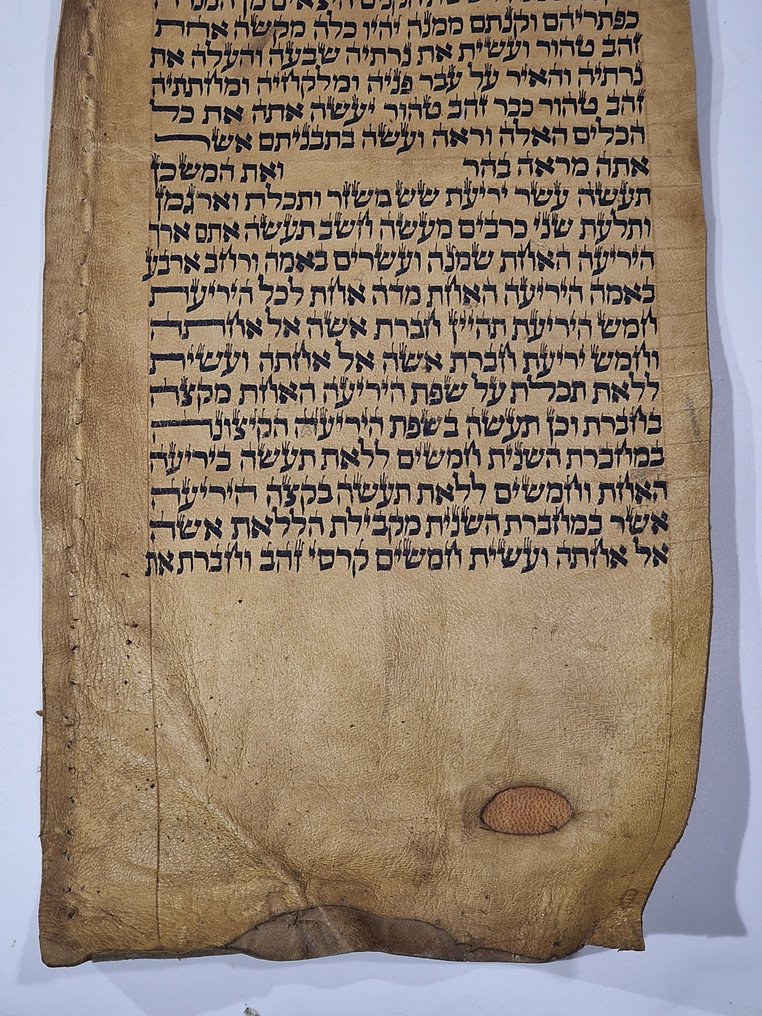 הקנים היצאים מן המנרה
כפתריהם וקנתם ממנה יהיו כלה מקשה אחת
זהב טהור ועשית את נרתיה שבעה והעלה את
נרתיה והאיר על עבר פניה ומלקחיה ומחתתיה
זהב טהור ככר זהב טהור יעשה אתה את כל
הכלים האלה וראה ועשה בתבניתם אשר
אתה מראה בהר ואת המשכן
תעשה עשר יריעת שש משזר ותכלת וארגמן
ותלעת שני כרבים מעשה חשב תעשה אתם ארך
היריעה האחת שמנה ועשרים באמה ורחב ארבע
באמה היריעה האחת מדה אחת לכל היריעת
חמש היריעת תהיין חברת אשה אל אחתה
וחמש יריעת חברת אשה אל אחתה ועשית
ללאת תכלת על שפת היריעה האחת מקצה
בחברת וכן תעשה בשפת היריעה הקיצונה
במחברת השנית חמשים ללאת תעשה ביריעה
האחת וחמשים ללאת תעשה בקצה היריעה
אשר במחברת השנית מקבילת הללאת אשה
אל אחתה ועשית חמשים קרסי זהב וחברת את